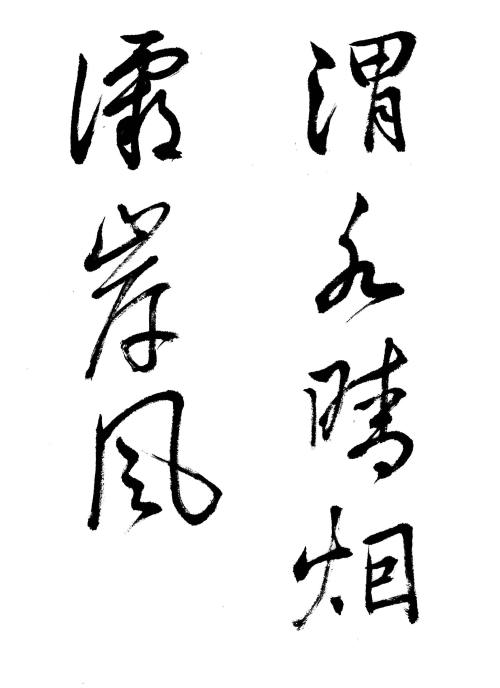 渭水晴烟
灞岸風